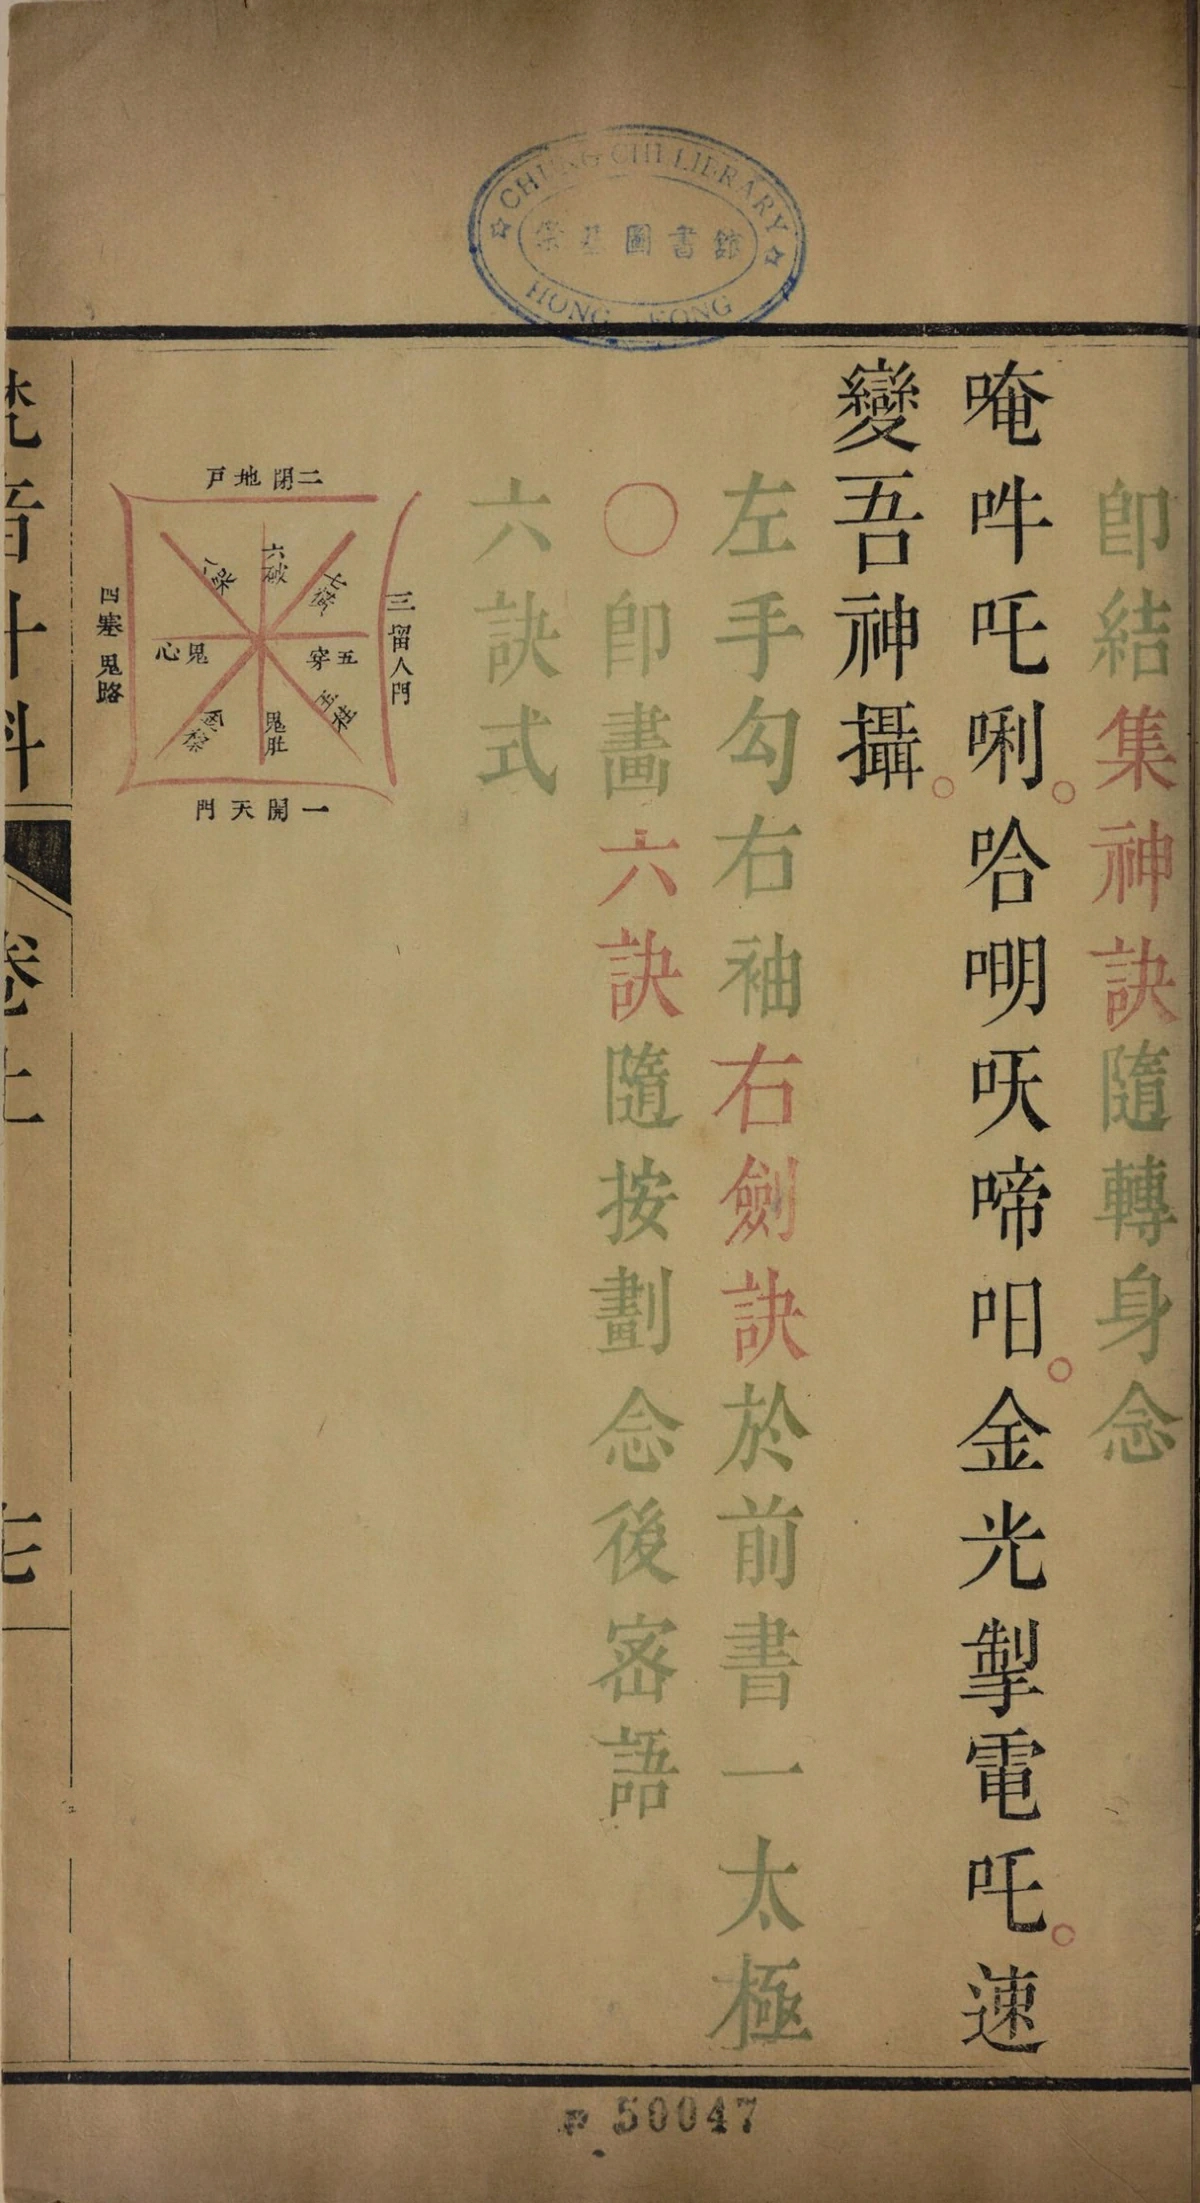 卽結集神訣隨轉身念
唵吽吒唎。哈㖼㕭啼呬。金光掣電吒。速
變吾神攝。
左手勾右袖右劍訣於前書一太極
○卽畫六訣隨按劃念後宻語
六訣式
二閉地戸
三留人門
四塞鬼路
一開天門
六破
五穿
鬼心
鬼肚
卷上
CHUNG CHI LIBRARY
崇基圖書館
HONG KONG
50047